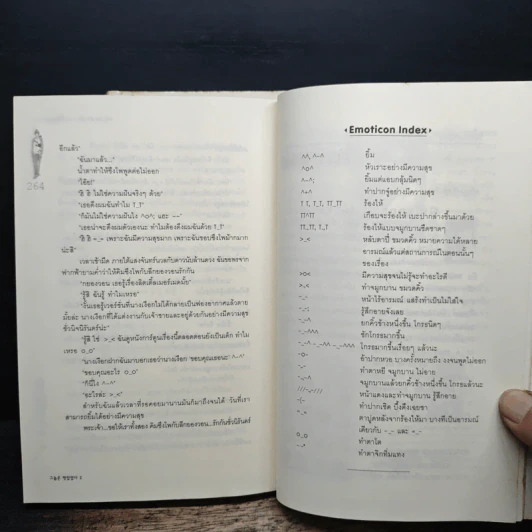 อีกแล้ว"
"ฉันมาแล้ว..."
น้ำตาทำให้ชิงโพพูดต่อไม่ออก
"โอ๊ย!"
"ฮิ ฮิ ไม่ใช่ความฝันจริงๆ ด้วย"
"เธอดึงผมฉันทำไม T_T"
"ก็มันไม่ใช่ความฝันไง ^o^; และ --"
"เธอน่าจะดึงผมตัวเองนะ ทำไมต้องดึงผมฉันด้วย T_T"
"ฮิ ฮิ =_= เพราะฉันมีความสุขมาก เพราะฉันชอบชิงโพม้ากมาก
น่ะสิ"
เวลาเช้ามืด ภายใต้แสงจันทร์นวลกับดาวนับล้านดวง ฉันขอพรจาก
ฟากฟ้ายามค่ำให้คิมชิงโพกับลีกยองวอนรักกัน
"กยองวอน เธอรู้เรื่องลิตเติ้ลเมอร์เมดมั้ย"
"รู้สิ ฉันรู้ ทำไมเหรอ"
"รู้สิ ใช่ >_< ฉันดูหนังการ์ตูนเรื่องนี้ตลอดตอนยังเป็นเด็ก ทำไม
เหรอ o_o"
"นางเงือกฝากฉันมาบอกเธอว่าขอบคุณเธอนะ ^-^"
"ขอบคุณอะไร o_o"
"ก็นี่ไง ^-^"
"อะไรล่ะ >_<"
สำหรับฉันแล้วเวลาที่รอคอยมานานมันก็มาถึงจนได้ วันที่เรา
สามารถยิ้มได้อย่างมีความสุข
พระเจ้า...ขอให้เราทั้งสอง คิมชิงโพกับลีกยองวอน...รักกันชั่วนิรันดร์
264
‹Emoticon Index›
^^, ^-^ ยิ้ม
^o^ หัวเราะอย่างมีความสุข
^-^; ยิ้มแต่แอบกลุ้มนิดๆ
^+^ ทำปากจู๋อย่างมีความสุข
T T, T_T, TT_TT ร้องไห้
T^T เกือบจะร้องไห้ เบะปากล่างขึ้นมาด้วย
TT^TT ร้องไห้แบบจมูกบานซี้ดซาดๆ
>_< หลับตาปี๋ ขมวดคิ้ว หมายความได้หลาย
อารมณ์แล้วแต่สถานการณ์ในตอนนั้นๆ
ของเรื่อง
>o< มีความสุขจนไม่รู้จะทำอะไรดี
>^< ทำจมูกบาน ขมวดคิ้ว
-_- หน้าไร้อารมณ์ แสร้งทำเป็นไม่ใส่ใจ
-_-; รู้สึกอายจังเลย
-_-^ ยกคิ้วข้างหนึ่งขึ้น โกรธนิดๆ
-_-^^^ ชักโกรธมากขึ้น
โกรธมากขึ้นเรื่อยๆ แล้วนะ
-o- อ้าปากหวอ บางครั้งหมายถึง งงจนพูดไม่ออก
ทำตาหยี จมูกบาน ไม่อาย
จมูกบานแล้วยกคิ้วข้างหนึ่งขึ้น โกรธแล้วนะ
หน้าแดงและทำจมูกบาน รู้สึกอาย
ทำปากเชิด บึ้งตึงเฉยชา
ตาปูดหลังจากร้องไห้มา บางทีเป็นอารมณ์
เดียวกับ -_- และ =_=
o_o ทำตาโต
ทำตาจิกทิ่มแทง